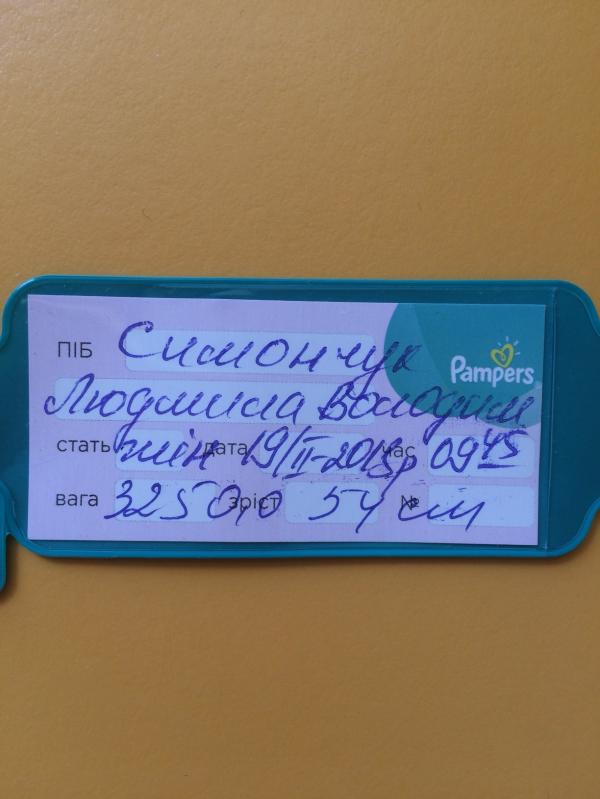 ПІБ Симончук
Pampers
Людмила Володим
стать жін дата 19/II-2018р час 09 45
вага 3250,0 зріст 54 см №